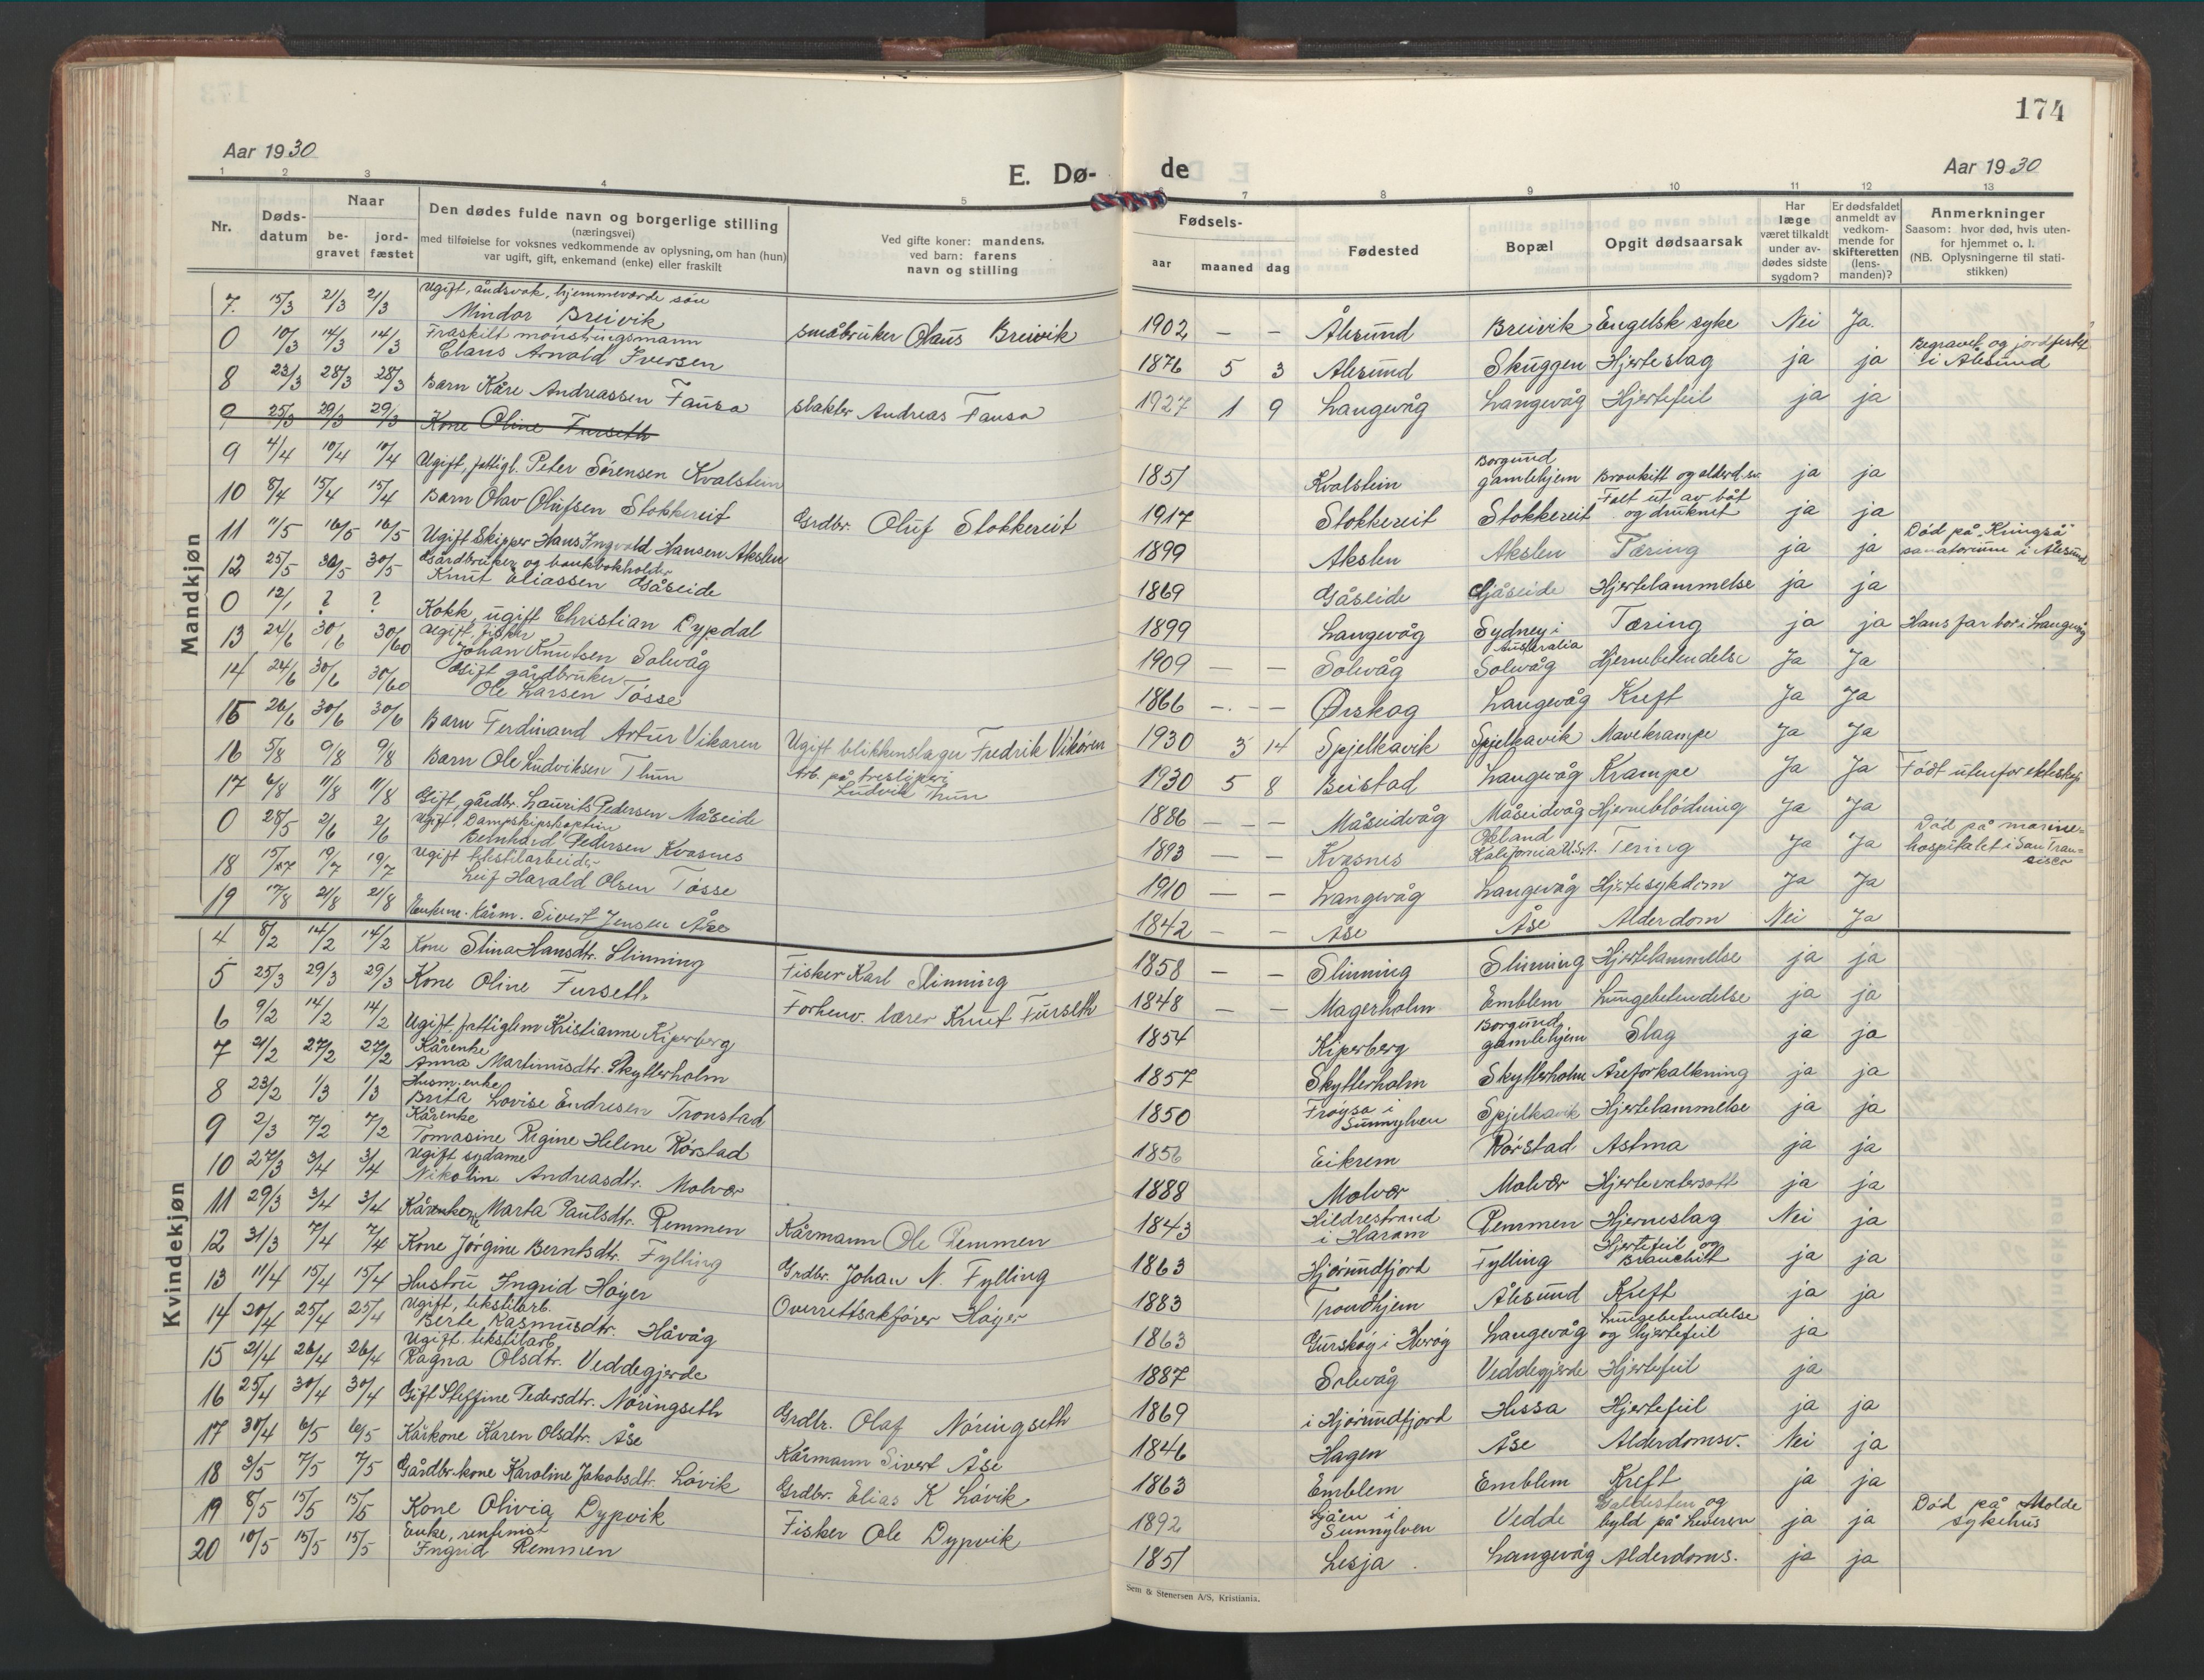 174
Aar 1930
E. Dø-
de
Aar 1930
1 2 3 4 5 6 7 8 9 10 11 12 13
Nr.
Døds-
datum
Naar
be-
gravet
jord-
fæstet
Den dødes fulde navn og borgerlige stilling
(næringsvei)
med tilføielse for voksnes vedkommende av oplysning, om han (hun)
var ugift, gift, enkemand (enke) eller fraskilt
Ved gifte koner: mandens,
ved barn: farens
navn og stilling
Fødsels-
aar
maaned
dag
Fødested
Bopæl
Opgit dødsaarsak
Har
læge
været tilkaldt
under av-
dødes sidste
sygdom?
Er dødsfaldet
anmeldt av
vedkom-
mende for
skifteretten
(lens-
manden)?
Anmerkninger
Saasom: hvor død, hvis uten-
for hjemmet o. l.
(NB. Oplysningerne til stati-
stikken)
Mandkjøn
7. 15/3 21/3 21/3 Ugift, åndsvak, hjemmeværde søn
Mindor Breivik småbruker Olaus Breivik 1902 — — Ålesund Breivik Engelsk syke Nei Ja.
0 10/3 14/3 14/3 Fraskilt mønstringsmann
Claus Arnold Iversen 1876 5 3 Ålesund Skuggen Hjerteslag ja ja Begravet og jordfestet
i Ålesund
8 23/3 28/3 28/3 Barn Kåre Andreassen Fausa slakter Andreas Fausa 1927 1 9 Langevåg Langevåg Hjertefeil ja ja
9 25/3 29/3 29/3 Kone Oline Furseth
9 4/4 10/4 10/4 Ugift, fattigl. Peter Sørensen Kvalstein 1851 Kvalstein Borgund
gamlehjem Bronkitt og alderd.sv. ja ja
10 8/4 15/4 15/4 Barn Olav Olufsen Stokkereit Grdbr. Oluf Stokkereit 1917 Stokkereit Stokkereit Falt ut av båt
og druknet ja ja
11 11/5 16/5 16/5 Ugift Skipper Hans Ingvald Hansen Akslen 1899 Akslen Akslen Tæring ja ja Död på "Kringsjå"
sanatorium i Ålesund
12 25/5 30/5 30/5 Gårdbruker og bankbokholder
Knut Eliassen Gåseide 1869 Gåseide Gåseide Hjertelammelse ja ja
0 12/1 ? ? Kokk, ugift Christian Dypdal 1899 Langevåg Sydney i
Australia Tæring ja ja Hans far bor i Langevåg
13 24/6 30/6 30/60 Ugift, fisker
Johan Knutsen Solevåg 1909 — — Solevåg Solevåg Hjernebetendelse Ja Ja
14 24/6 30/6 30/60 Gift gårdbruker
Ole Larsen Tösse 1866 — — Ørskog Langevåg Kreft Ja Ja
15 26/6 30/6 30/6 Barn Ferdinand Artur Vikaren Ugift blikkenslager Fredrik Vikøren 1930 3 14 Spjelkavik Spjelkavik Mavekrampe Ja Ja
16 5/8 9/8 9/8 Barn Ole Ludviksen Thun Arb. på tresliperi
Ludvik Thun 1930 5 8 Beistad Langevåg Krampe Ja Ja Födt utenfor ekteskap
17 6/8 11/8 11/8 Gift, gårdbr. Laurits Pedersen Måseide 1886 — — Måseidvåg Måseidvåg Hjerneblödning Ja Ja
0 28/5 2/6 2/6 Ugift, Dampskipskaptein
Bernhard Pedersen Kvasnes 1893 — — Kvasnes Okland
Kalifornia U.S.A. Tering Ja Ja Död på marine-
hospitalet i San Fran-
sisco
18 15/7 19/7 19/7 Ugift tekstilarbeider
Leif Harald Olsen Tösse 1910 — — Langevåg Langevåg Hjertesykdom Ja Ja
19 17/8 21/8 21/8 Enkem. Kårm. Sivert Jensen Åse 1842 — — Åse Åse Alderdom Nei Ja
Kvindekjøn
4 8/2 14/2 14/2 Kone Stina Hansdtr. Slinning Fisker Karl Slinning 1858 — — Slinning Slinning Hjertelammelse ja ja
5 25/3 29/3 29/3 Kone Oline Furseth Forhenv. lærer Knut Furseth 1848 — — Magerholm Emblem Lungebetendelse ja ja
6 9/2 14/2 14/2 Ugift, fattiglem Kristianne Kiperberg 1854 Kiperberg Borgund
gamlehjem Slag ja ja
7 21/2 27/2 27/2 Kårenke
Anna Martinusdtr. Skytterholm 1857 Skytterholm Skytterholm Åreforkalkning ja ja
8 23/2 1/3 1/3 Husm. enke
Brita Lovise Endresen Tronstad 1850 Frøysa i
Sunnylven Spjelkavik Hjertelammelse ja ja
9 2/3 7/2 7/2 Kårenke
Tomasine Regine Helene Rørstad 1856 Eikrem Rørstad Astma ja ja
10 27/3 3/4 3/4 Ugift sydame
Nikoline Andreasdtr. Molvær 1888 Molvær Molvær Hjertevatersott ja ja
11 29/3 3/4 3/4 Kårkone Marta Paulsdtr. Remmen Kårmann Ole Remmen 1843 Hildrestrand
i Haram Remmen Hjerneslag Nei ja
12 31/3 7/4 7/4 Kone Jørgine Berntsdtr. Fylling Grdbr. Johan N. Fylling 1863 Hjørundfjord Fylling Hjertefeil og
Branchitt ja ja
13 11/4 15/4 15/4 Hustru Ingrid Høyer Overrettsakfører Høyer 1883 Trondhjem Ålesund Kreft ja ja
14 20/4 25/4 25/4 Ugift, tekstilarb.
Berte Rasmusdtr. Håvåg 1863 Gurskøy i Herøy Langevåg Lungebetendelse
og hjertefeil ja
15 21/4 26/4 26/4 Ugift. tekstilarb.
Ragna Olsdtr. Veddegjerde 1887 Solevåg Veddegjerde Hjertefeil ja
16 25/4 30/4 30/4 Gift Steffine Pedersdtr. Nøringseth Grdbr. Olaf Nöringseth 1869 i Hjørundfjord Hessa Hjertefeil ja ja
17 30/4 6/5 6/5 Kårkone Karen Olsdtr. Åse Kårmann Sivert Åse 1846 Hagen Åse Alderdomsv. Nei ja
18 3/5 7/5 7/5 Gårdbr.kone Karoline Jakobsdtr. Løvik Grdbr. Elias K Løvik 1863 Emblem Emblem Kreft ja ja
19 8/5 15/5 15/5 Kone Olivia Dypvik Fisker Ole Dypvik 1892 i
Sunnylven Vedde Galdesten og
byld på Leveren ja ja Död på Molde
sykehus
20 10/5 15/5 15/5 Enke, renfemist
Ingrid Remmen 1851 Lesja Langevåg Alderdoms. ja ja
Sem & Stenersen A/S, Kristiania.